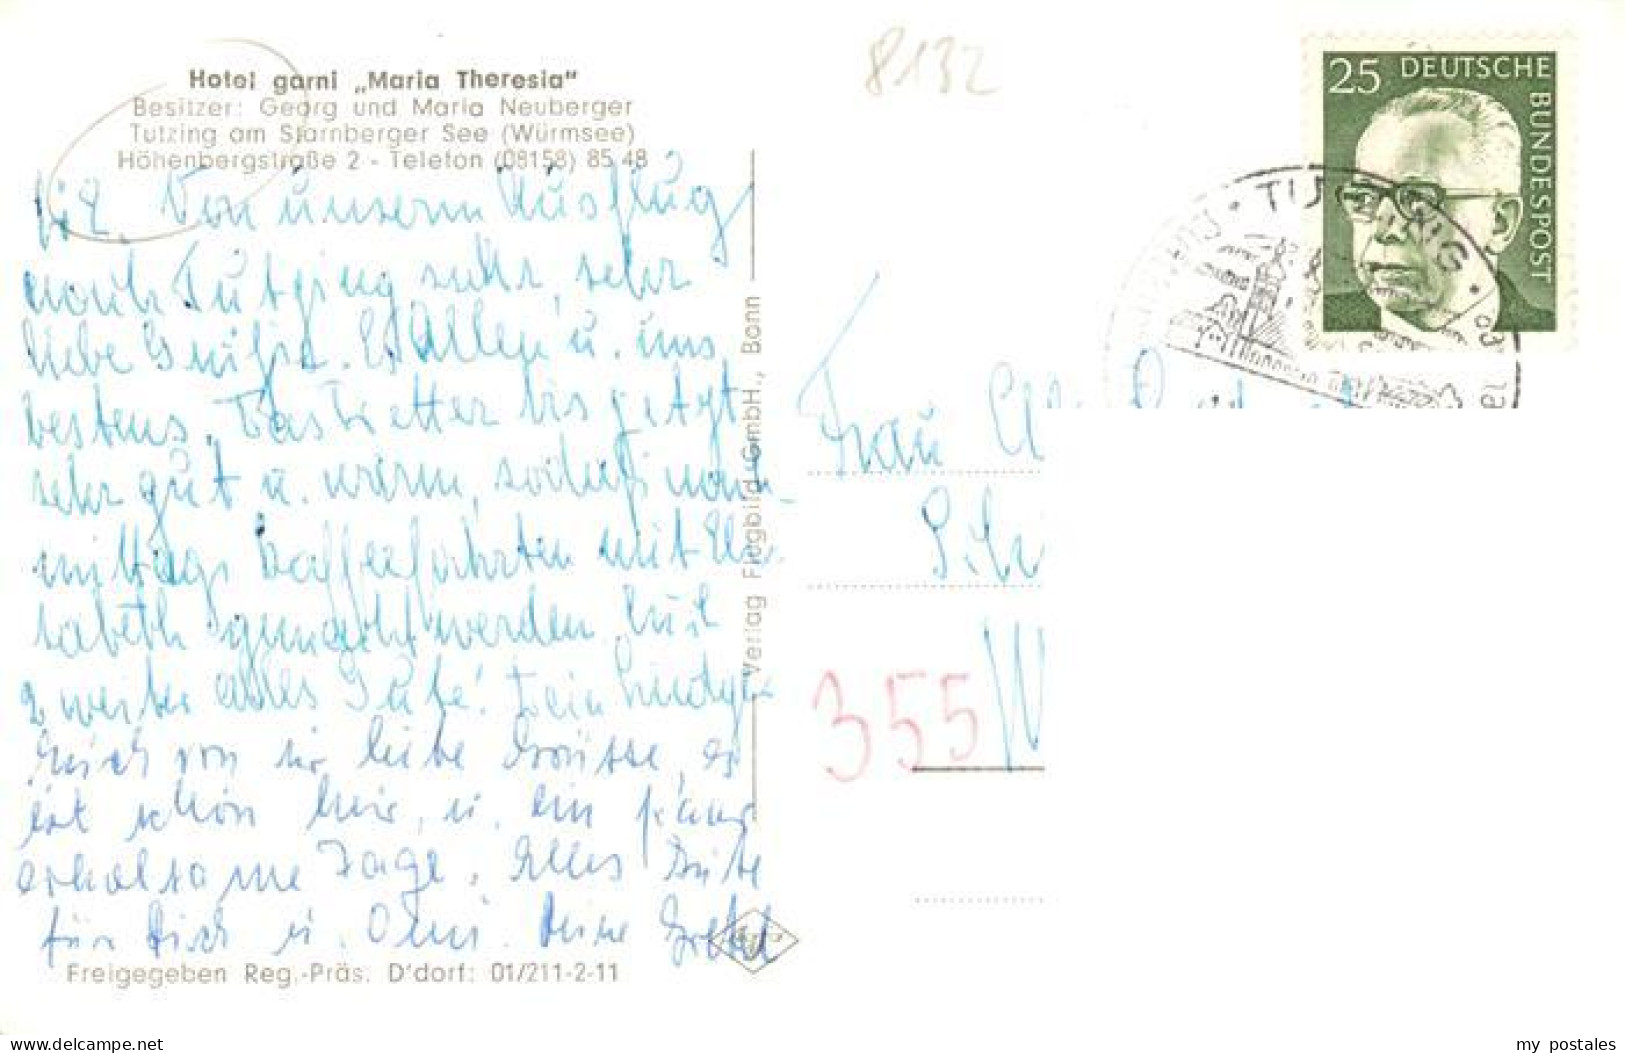 8132
Hotel garni „Maria Theresia"
Besitzer: Georg und Maria Neuberger
Tutzing am Starnberger See (Würmsee)
Höhenbergstraße 2 - Telefon (08158) 85 48
Von unserm Ausflug
nach Tutzing sehr, sehr
liebe Grüße. Es Allen u. uns
bestens. Das Wetter bis jetzt
sehr gut u. warm, sodaß nach-
mittags Kaffeefahrten mit Eli-
sabeth gemacht werden.
weiter alles Gute! Dein
Euch von mir liebe Grüsse, es
ist schön hier, u. ein paar
erholsame Tage. Alles Gute
für Dich u. Omi. Deine Gretel
Freigegeben Reg.-Präs. D'dorf: 01/211-2-11
Verlag Flugbild-GmbH., Bonn
25 DEUTSCHE
BUNDESPOST
TUTZING
Frau
355
my postales
www.delcampe.net